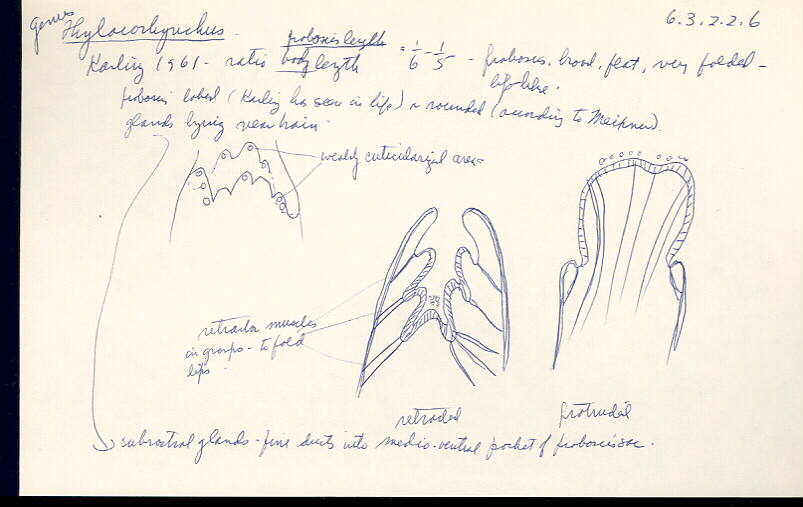 6.3.2.2.6
Genus Thylacorhynchus.
Karling 1961 - ratio proboscis length / body length = 1/6 - 1/5 - proboscis, broad, flat, very folded -
lip-like.
proboscis lobed (Karling has seen in life) ~ rounded (according to Meixner).
glands lying near brain.
weakly cuticularized areas
retractor muscles
in groups - to fold
lips.
retracted
protruded
subrostral glands - fine ducts into medio-ventral pocket of proboscis sac.